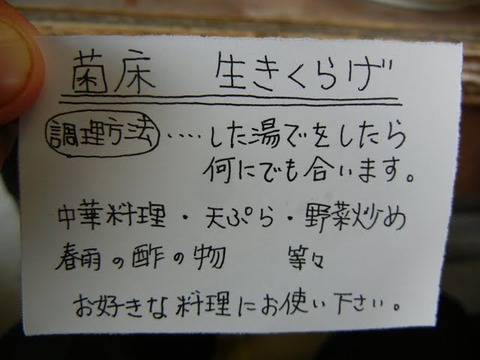 菌床 生きくらげ
調理方法 ‥‥した湯でをしたら
何にでも合います。
中華料理・天ぷら・野菜炒め
春雨の酢の物 等々
お好きな料理にお使い下さい。